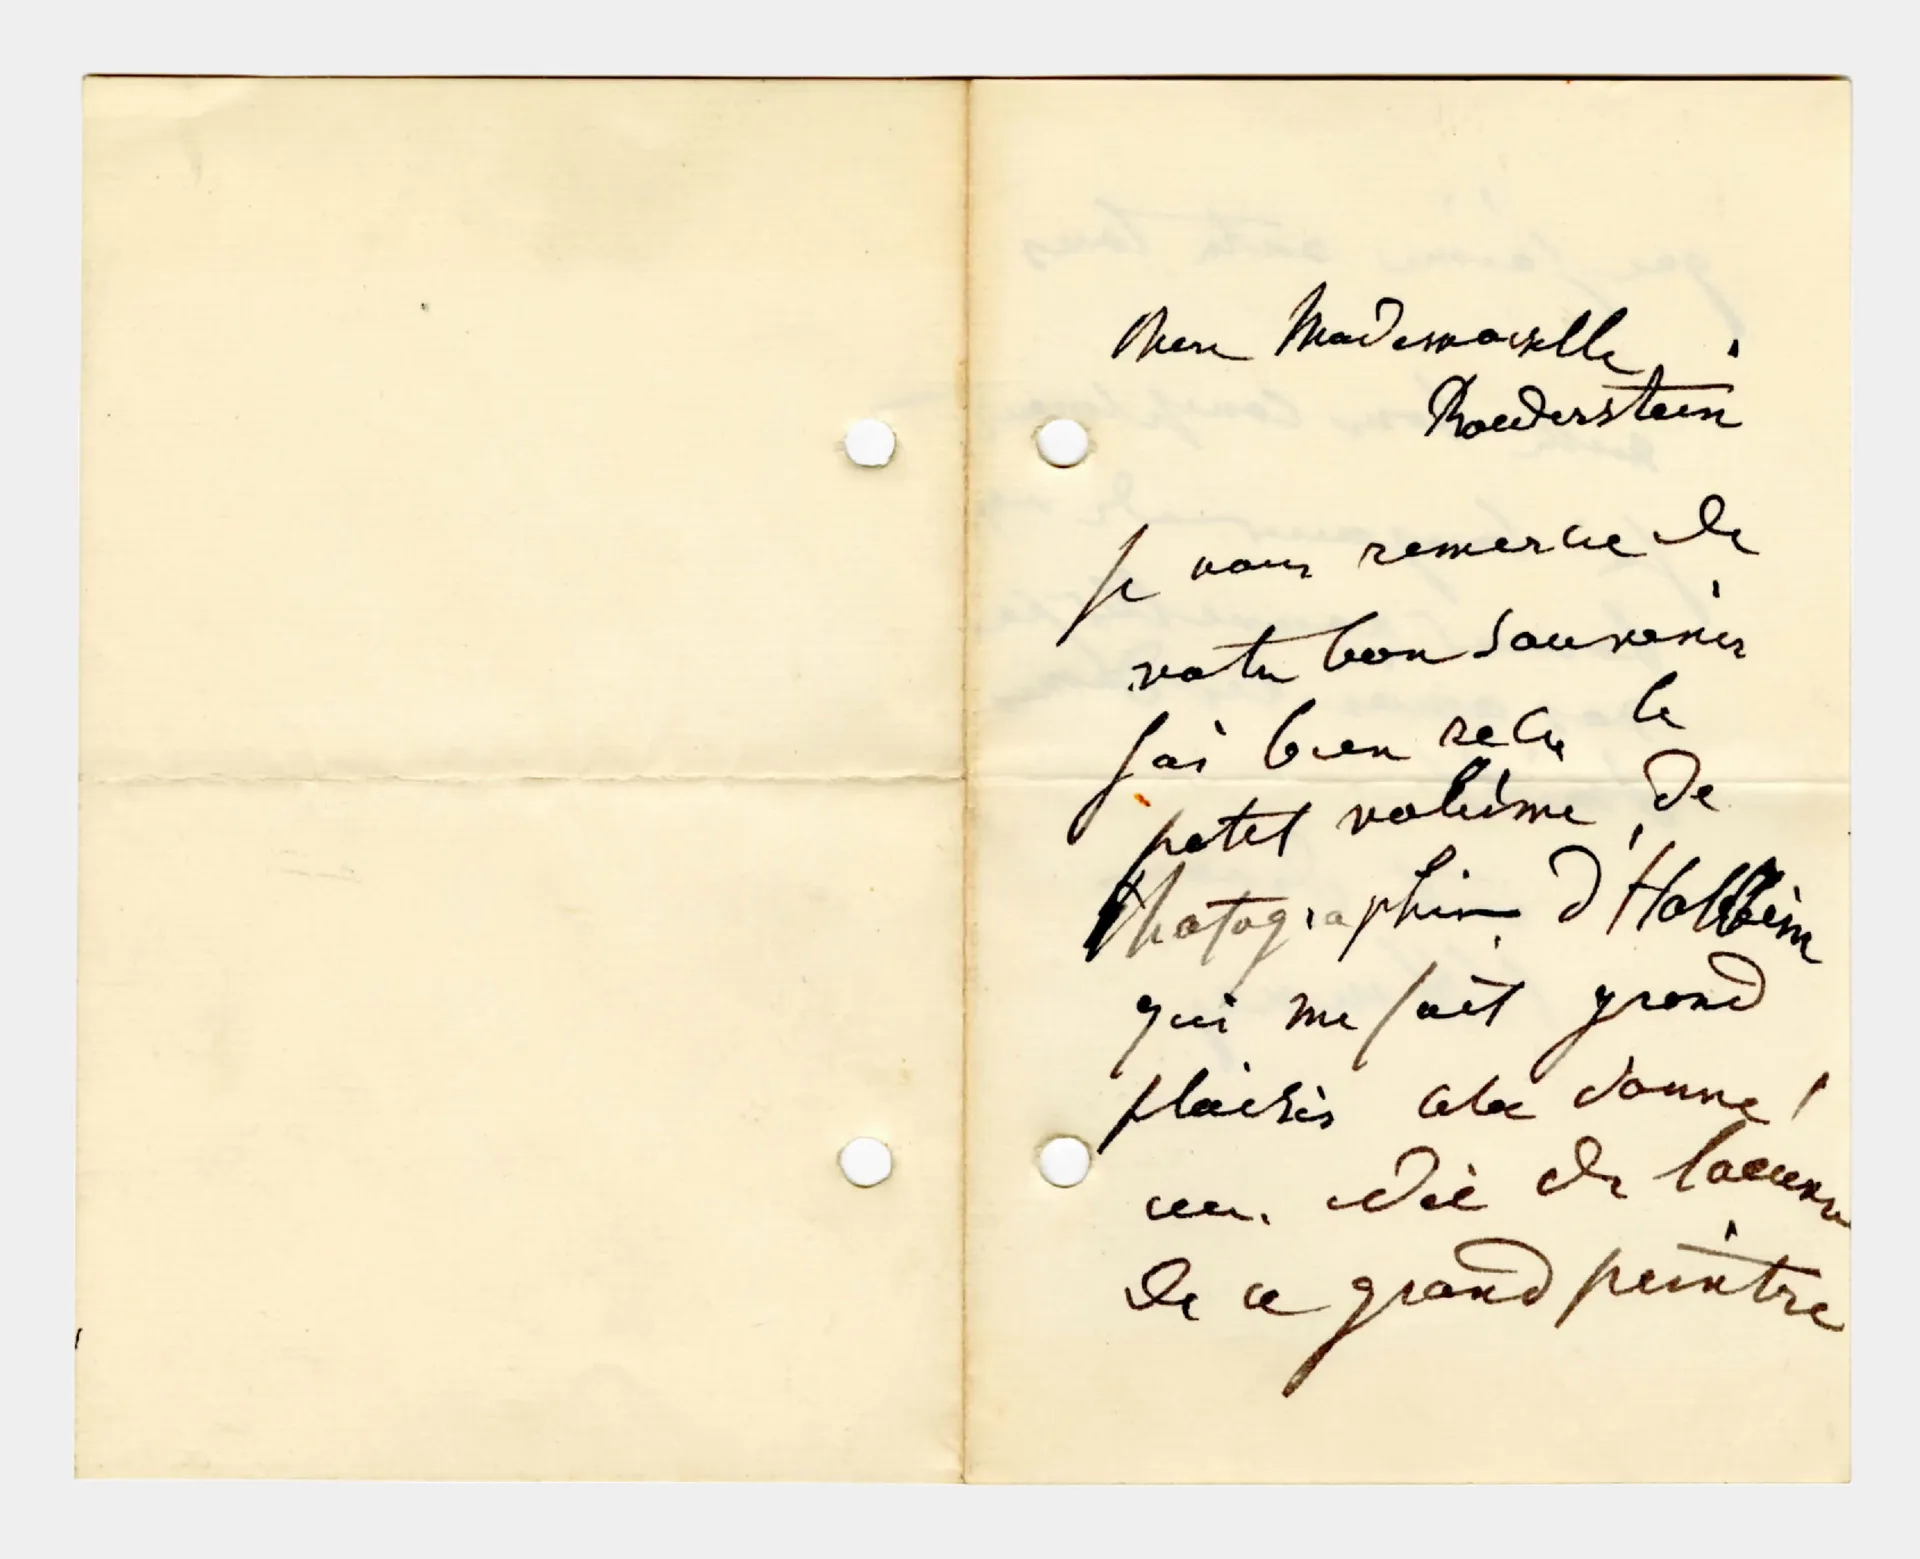 Chere Mademoiselle
Roederstein
je vous remercie de
votre bon souvenir
j'ai bien reçu le
petit volume de
Photographies d'Holbein
qui me fait grand
plaisir cela donne
une idée de l'œuvre
de ce grand peintre